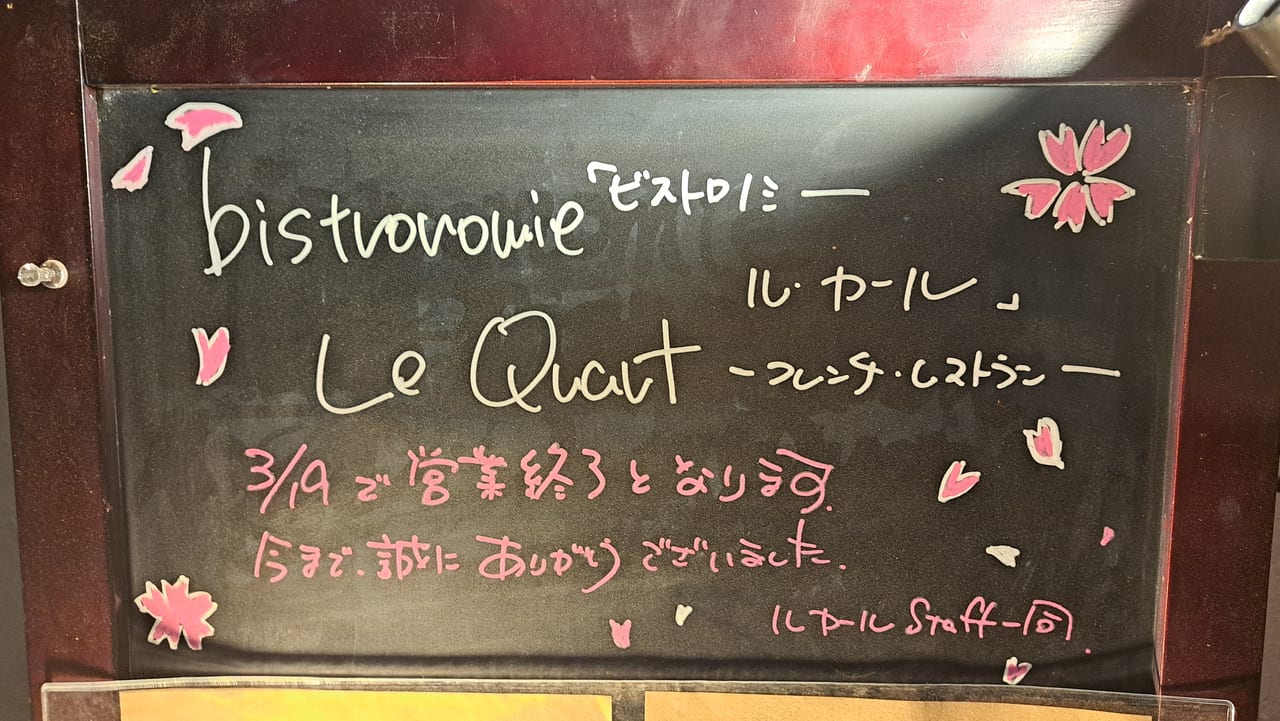 bistronomie「ビストロノミー
ル・カール」
Le Quart ーフレンチ・レストランー
3/19で営業終了となります.
今まで、誠にありがとうございました.
ルカールStaff一同.